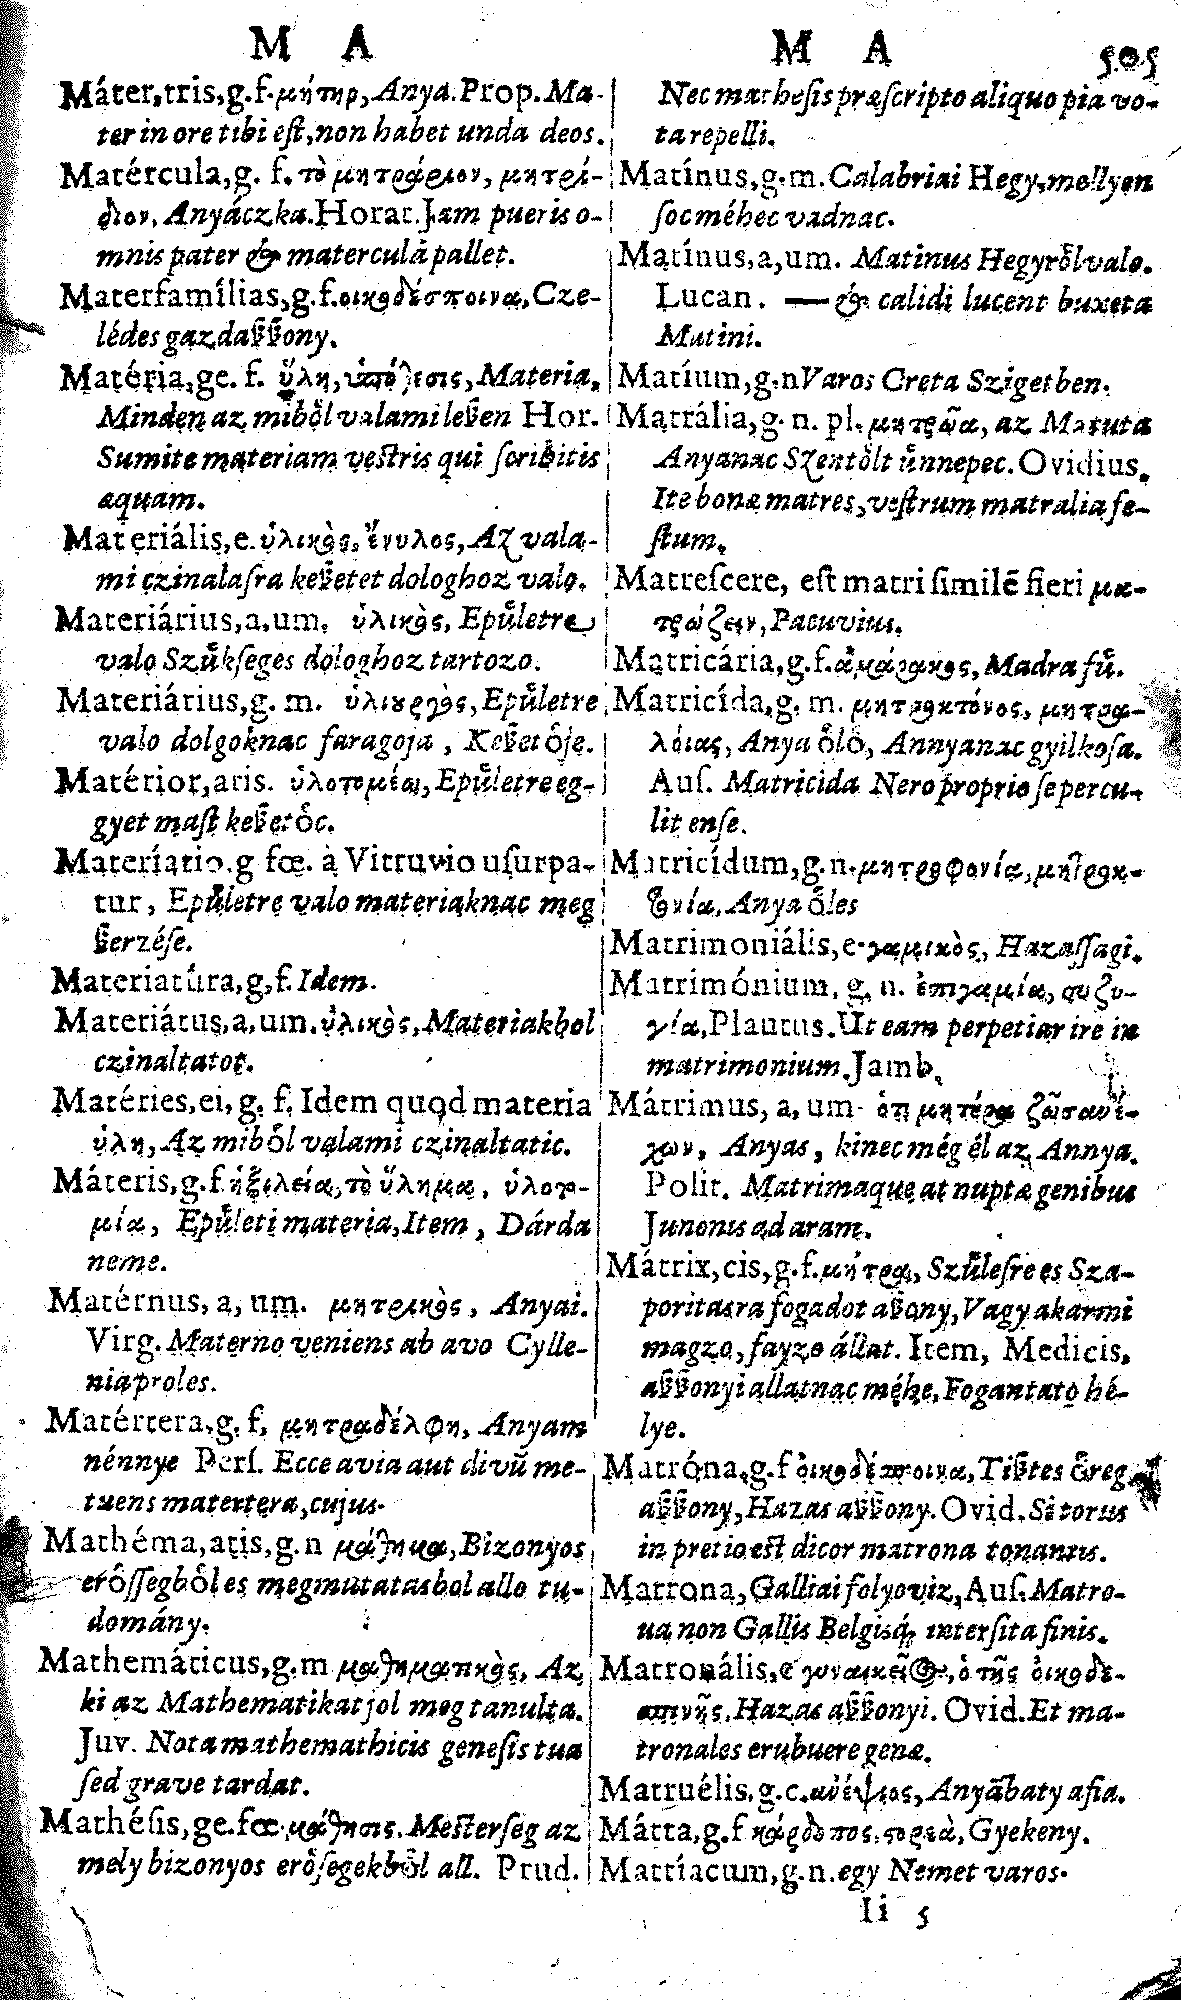 M A
Máter, tris, g. f. μήτηρ, Anya. Prop. Ma-
ter in ore tibi eſt, non habet unda deos.
Matércula, g. f. τὸ μητράριον, μητρί-
διον, Anyáczka. Horat. Jam pueris o-
mnis pater & matercula pallet.
Materfamílias, g. f. οικοδέσποινα, Cze-
lédes gazdaſſony.
Matéria, ge. f. ὕλη, ὑπόθεσις, Materia,
Minden az mibo̊l valami leſſen Hor.
Sumite materiam veſtris qui ſcribitis
æquam.
Materiális, e. ὑλικὸς, ἔνυλος, Az vala-
mi czinalaſra keſſetet dologhoz valo.
Materiárius, a, um. ὑλικὸς, Epůletre
valo Szůkſeges dologhoz tartozo.
Materiárius, g. m. ὑλουργὸς, Epůletre
valo dolgoknac faragoja, Keſſeto̊je.
Matérior, aris. ὑλοτομέω, Epůletre eg-
gyet maſt keſſeto̊c.
Materíatio. g fœ. à Vitruvio uſurpa-
tur, Epůletre valo materiaknac meg
ſſerzéſe.
Materiatúra, g, f. Idem.
Materiátus, a, um. ὑλικὸς, Materiakbol
czinaltatot.
Matéries, ei, g. f. Idem quod materia
ὑλη, Az mibo̊l valami czinaltatic.
Máteris, g. f ἡξιλεία, τὸ ὕλημα, ὑλοτο-
μία, Epůleti materia, Item, Dárda
neme.
Matérnus, a, um. μητρικὸς, Anyai.
Virg. Materno veniens ab avo Cylle-
nia proles.
Matértera, g. f, μητραδέλφη, Anyam
nénnye Perſ. Ecce avia aut divũ me-
tuens matertera, cujus.
Mathéma, atis, g. n μάθημα, Bizonyos
ero̊ſſegbo̊l es megmutatasbol allo tu-
domány.
Mathemáticus, g. m μαθηματικὸς, Az
ki az Mathematikat jol meg tanulta.
Juv. Nota mathemathicis geneſis tua
ſed grave tardat.
Mathéſis, ge. fœ. μάθησις. Meſterſeg az
mely bizonyos ero̊ſegekbo̊l all. Prud.
M A 505
Nec matheſis præſcripto aliquo pia vo-
ta repelli.
Matínus, g. m. Calabriai Hegy, mellyen
ſoc méhec vadnac.
Matínus, a, um. Matinus Hegyro̊l valo.
Lucan. — & calidi lucent buxeta
Matini.
Matíum, g. n Varos Creta Szigetben.
Matrália, g. n. pl. μητρῶα, az Matuta
Anyanac Szento̊lt ůnnepec. Ovidius.
Ite bonæ matres, veſtrum matralia fe-
ſtum.
Matreſcere, eſt matri ſimilē fieri μα-
τρώζειν, Pacuvius.
Matricária, g. f. ἀμάρακος, Madra fů.
Matricída, g. m. μητροκτόνος, μητρα-
λόιας, Anya o̊lo̊, Annyanac gyilkoſa.
Auſ. Matricida Nero proprio ſe percu-
lit enſe.
Matricídum, g. n. μητροφονία, μητροκ-
τονία, Anya o̊les
Matrimoniális, e. γαμικὸς, Hazaſſagi.
Matrimónium, g. n. ἐπιγαμία, συζυ-
γία, Plautus. Ut eam perpetiar ire in
matrimonium. Jamb.
Mátrimus, a, um. ὁτι μητέρα ζῶσαν ἔ-
χων, Anyas, kinec még él az Annya.
Polit. Matrimaque at nuptæ genibus
Junonis ad aram.
Mátrix, cis, g. f. μήτρα, Szůleſre es Sza-
poritasra fogadot aſſony, Vagy akarmi
magzo, fayzo állat. Item, Medicis,
aſſſonyi allatnac méhe, Fogantato hé-
lye.
Matróna, g. f οἰκοδέσποινα, Tiſſtes o̊reg
aſſſony, Hazas aſſſony. Ovid. Si torus
in pretio eſt dicor matrona tonantis.
Matrona, Galliai folyoviz, Auſ. Matro-
ua non Gallis Belgisq́; interſita finis.
Matronális, e γυναικεῖος, ὁ τῆς οἰκοδε-
σπινῆς, Hazas aſſſonyi. Ovid. Et ma-
tronales erubuere genæ.
Matruélis, g. c. ανέψιος, Anyād baty afia.
Mátta, g. f κάρδοπος, σορεὰ, Gyekeny.
Mattíacum, g. n. egy Nemet varos.
Ii 5